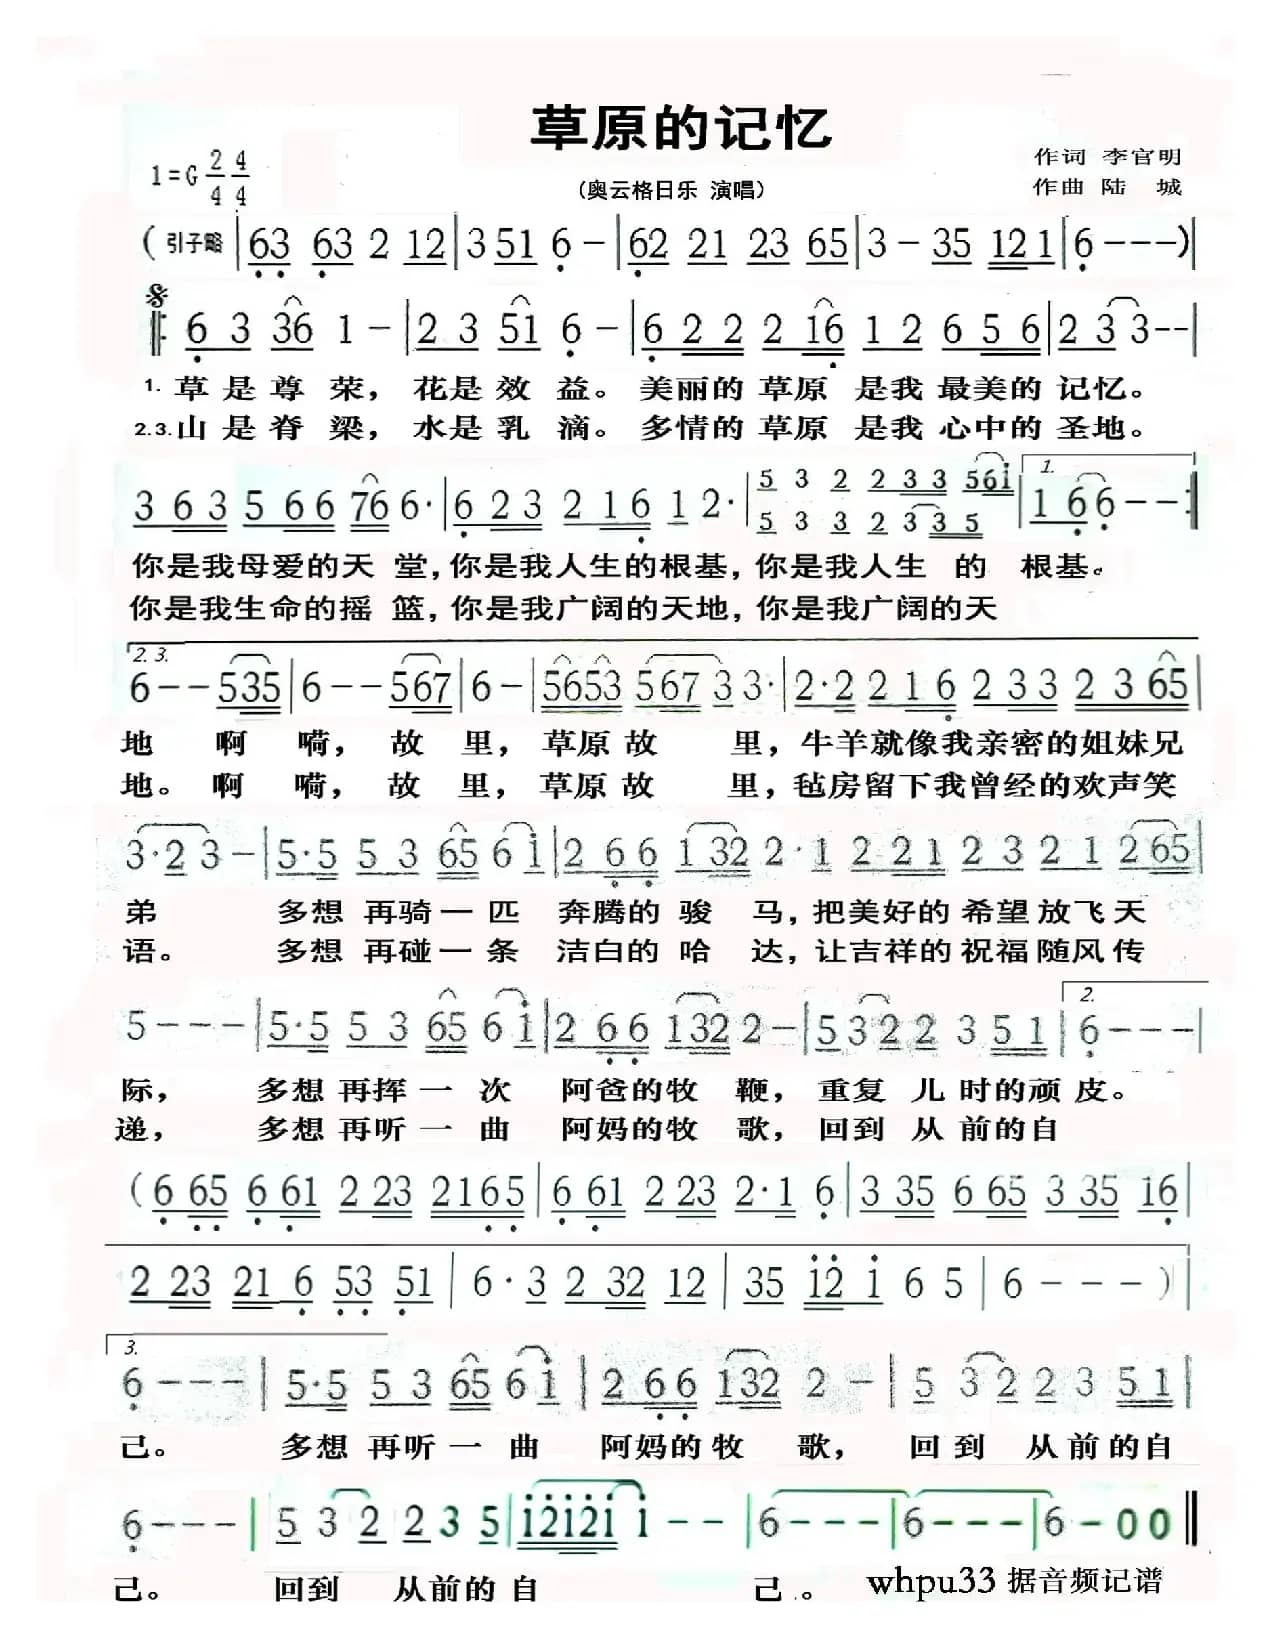 草原的记忆
1=G 2/4 4/4
(奥云格日乐 演唱)
作词 李官明
作曲 陆 城
(引子略 | 63 63 2 12 | 3 51 6 - | 62 21 23 65 | 3 - 35 121 | 6 - - - ) |
6 3 36 1 - | 2 3 51 6 - | 6 2 2 2 16 1 2 6 5 6 | 2 3 3 - - |
1. 草是尊荣，花是效益。美丽的草原是我最美的记忆。
2.3. 山是脊梁，水是乳滴。多情的草原是我心中的圣地。
3 6 3 5 6 6 76 6· | 6 2 3 2 1 6 1 2· | 5 3 2 2 3 3 561 | 1. 1 6 6 - - :|
5 3 3 2 3 3 5
你是我母爱的天堂，你是我人生的根基，你是我人生的根基。
你是我生命的摇篮，你是我广阔的天地，你是我广阔的天
2. 3.
6 - - 535 | 6 - - 567 | 6 - | 5653 567 3 3· | 2·2 2 1 6 2 3 3 2 3 65 |
地啊嗬，故里，草原故里，牛羊就像我亲密的姐妹兄
地。啊嗬，故里，草原故里，毡房留下我曾经的欢声笑
3·2 3 - | 5·5 5 3 65 6 1 | 2 6 6 132 2·1 2 2 1 2 3 2 1 2 65 |
弟 多想再骑一匹奔腾的骏马，把美好的希望放飞天
语。 多想再碰一条洁白的哈达，让吉祥的祝福随风传
2.
5 - - - | 5·5 5 3 65 6 1 | 2 6 6 132 2 - | 5 3 2 2 3 5 1 | 6 - - - |
际， 多想再挥一次阿爸的牧鞭，重复儿时的顽皮。
递， 多想再听一曲阿妈的牧歌，回到从前的自
(6 65 6 61 2 23 2165 | 6 61 2 23 2·1 6 | 3 35 6 65 3 35 16 |
2 23 21 6 53 51 | 6·3 2 32 12 | 35 12 1 6 5 | 6 - - - ) |
3.
6 - - - | 5·5 5 3 65 6 1 | 2 6 6 132 2 - | 5 3 2 2 3 5 1 |
己。 多想再听一曲阿妈的牧歌，回到从前的自
6 - - - | 5 3 2 2 3 5 | 12121 1 - - | 6 - - - | 6 - - - | 6 - 0 0 ||
己。 回到从前的自己。
whpu33 据音频记谱